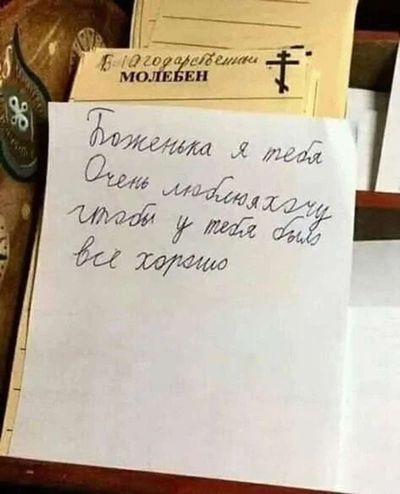 Благодарственный
МОЛЕБЕН
Боженька я тебя
Очень люблю я хочу
чтобы у тебя было
всё хорошо